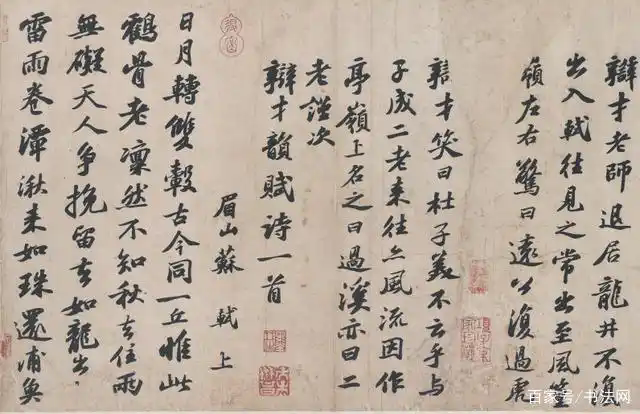 辯才老師退居龍井不復
出入軾往見之常出至風篁
嶺左右驚曰遠公復過虎
辯才笑曰杜子美不云乎與
子成二老来往亦風流因作
亭嶺上名之曰過溪亦曰二
老謹次
辯才韻賦诗一首
眉山蘇軾上
日月轉雙轂古今同一丘惟此
鶴骨老凜然不知秋去住兩
無礙天人争挽留去如龍出
雷雨卷潭湫来如珠還浦魚
百家号/书法网